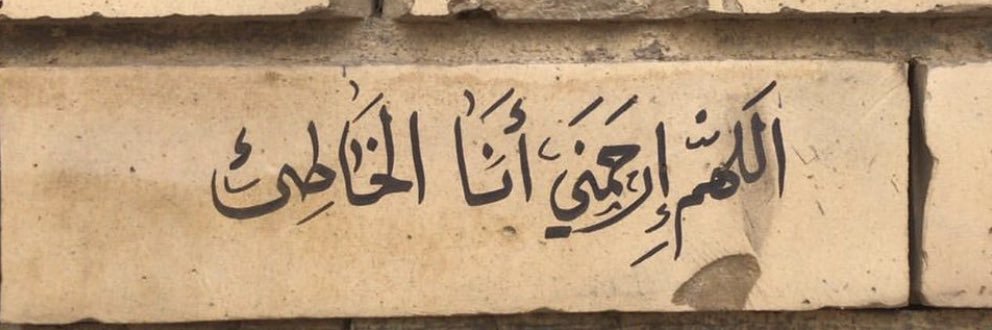 اللَّهُمَّ إِرحَمَنِي أَنَا الخَاطِئ